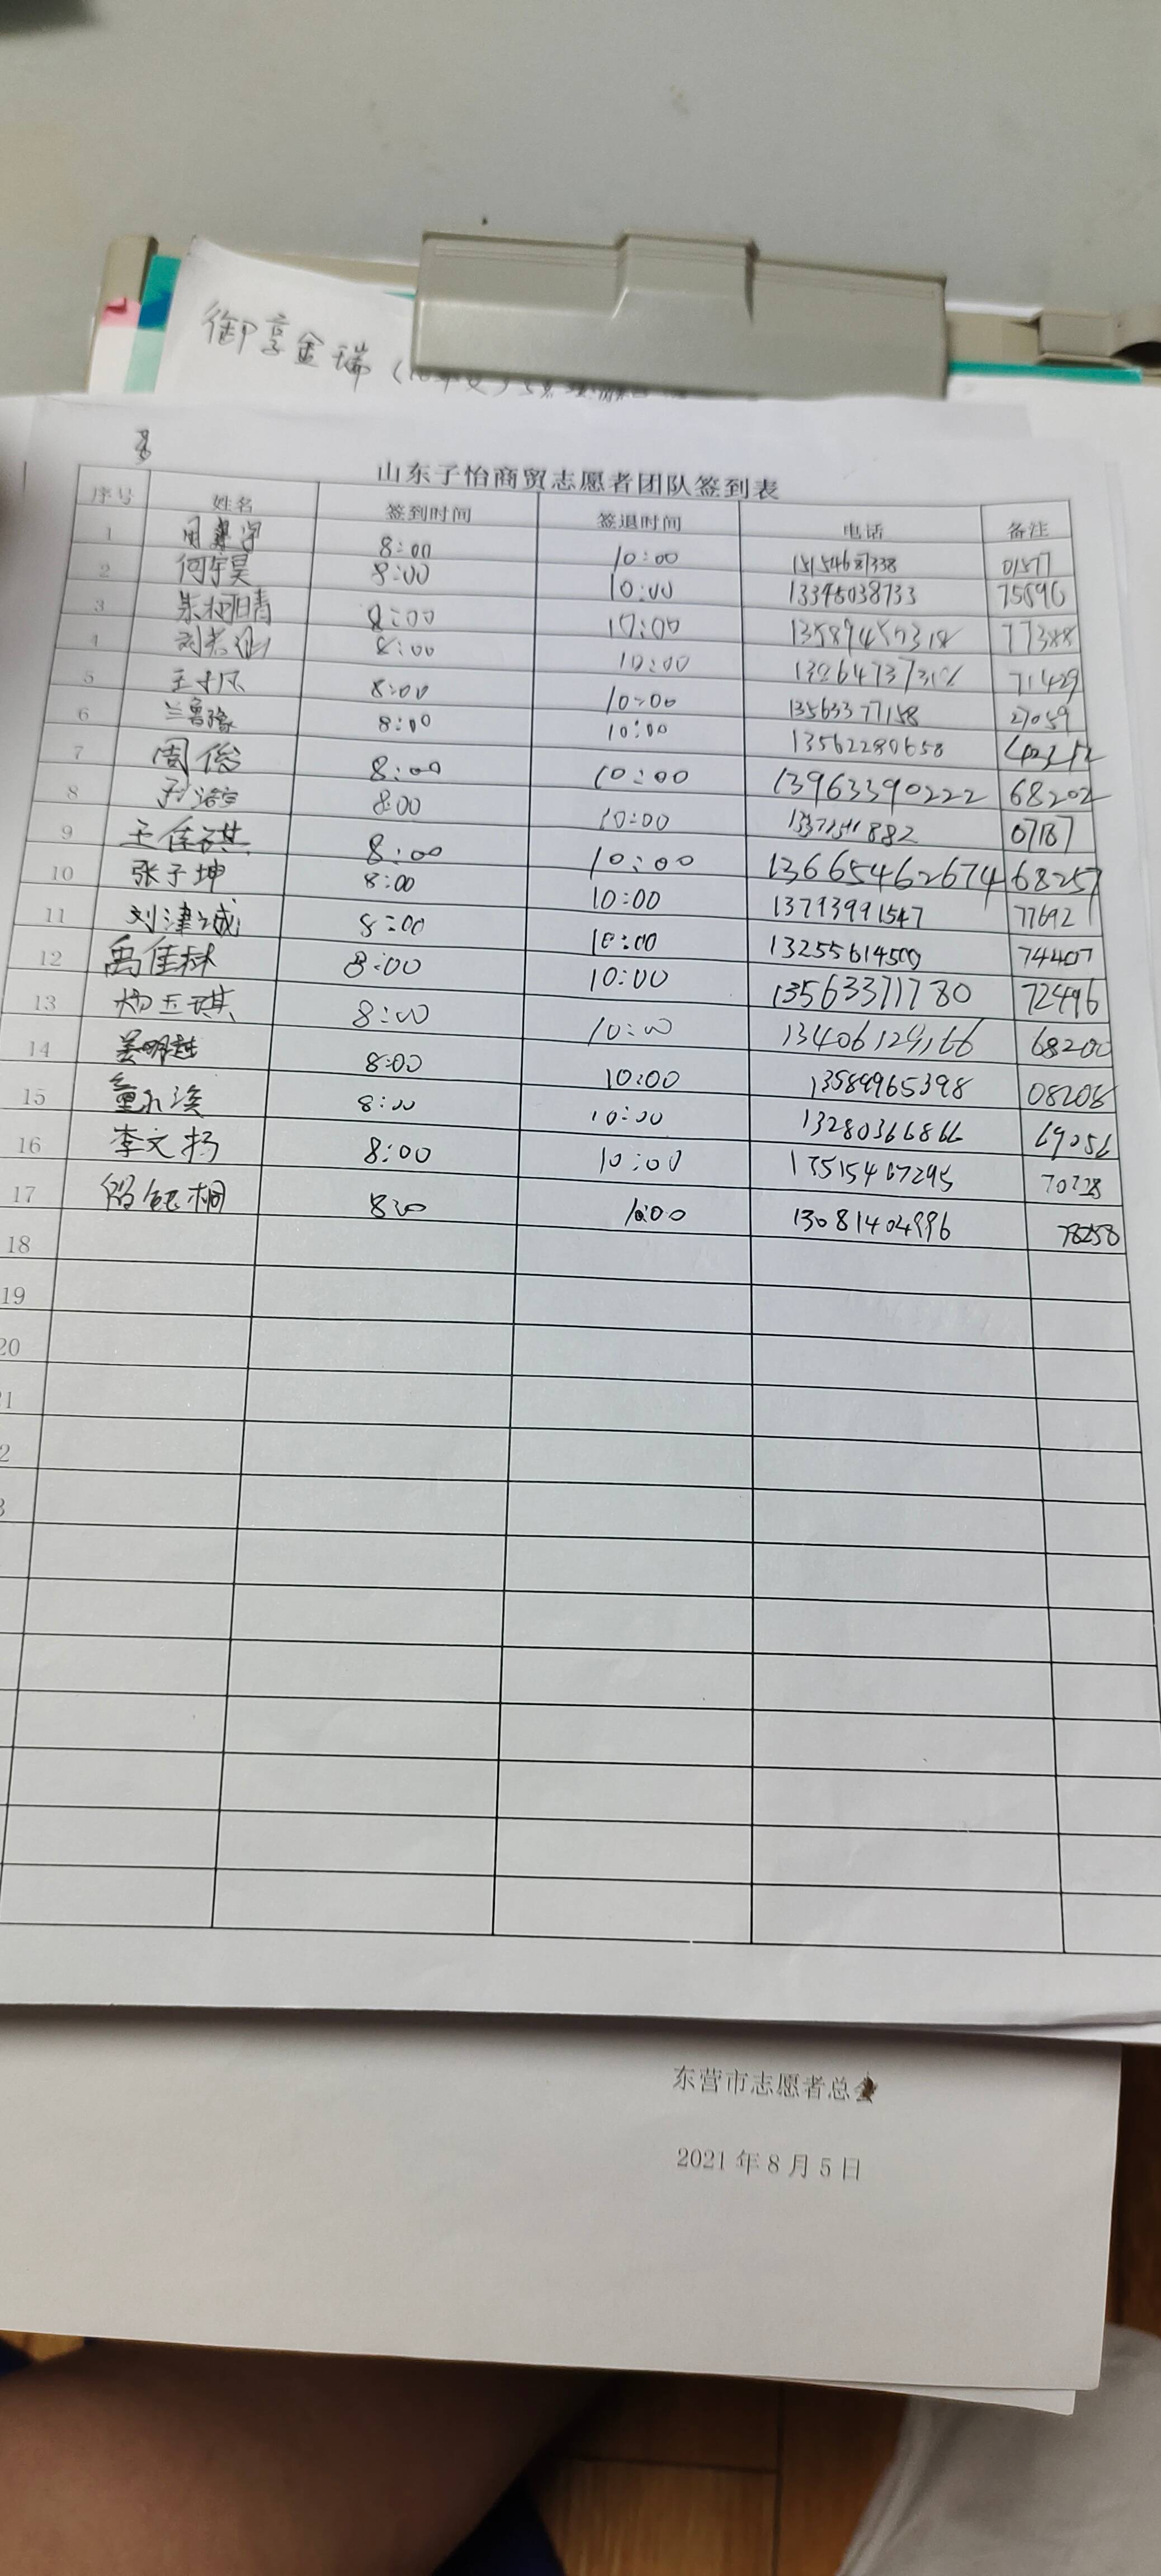 御享金瑞
山东子怡商贸志愿者团队签到表
序号 姓名 签到时间 签退时间 电话 备注
1 8:00 10:00 15154687338 01577
2 何宇昊 8:00 10:00 13345038733 75896
3 朱柯晴 8:00 10:00 77388
4 8:00 10:00 71429
5 8:00 10:00 13563377158 27059
6 兰鲁豫 8:00 10:00 13562280658
7 周俊 8:00 10:00 13963390222 68202
8 8:00 10:00 07187
9 王佳琪 8:00 10:00 13665462674 68257
10 张子坤 8:00 10:00 13793991547 77692
11 刘津诚 8:00 10:00 13255614509 74407
12 禹佳林 8:00 10:00 13563371780 72496
13 杨玉琪 8:00 10:00 13406129166 68200
14 姜明赵 8:00 10:00 13589965398 08208
15 8:00 10:00 13280366866 69056
16 李文扬 8:00 10:00 13515467295 70728
17 8:00 10:00 13081404996 78258
18
19
20
东营市志愿者总会
2021年8月5日